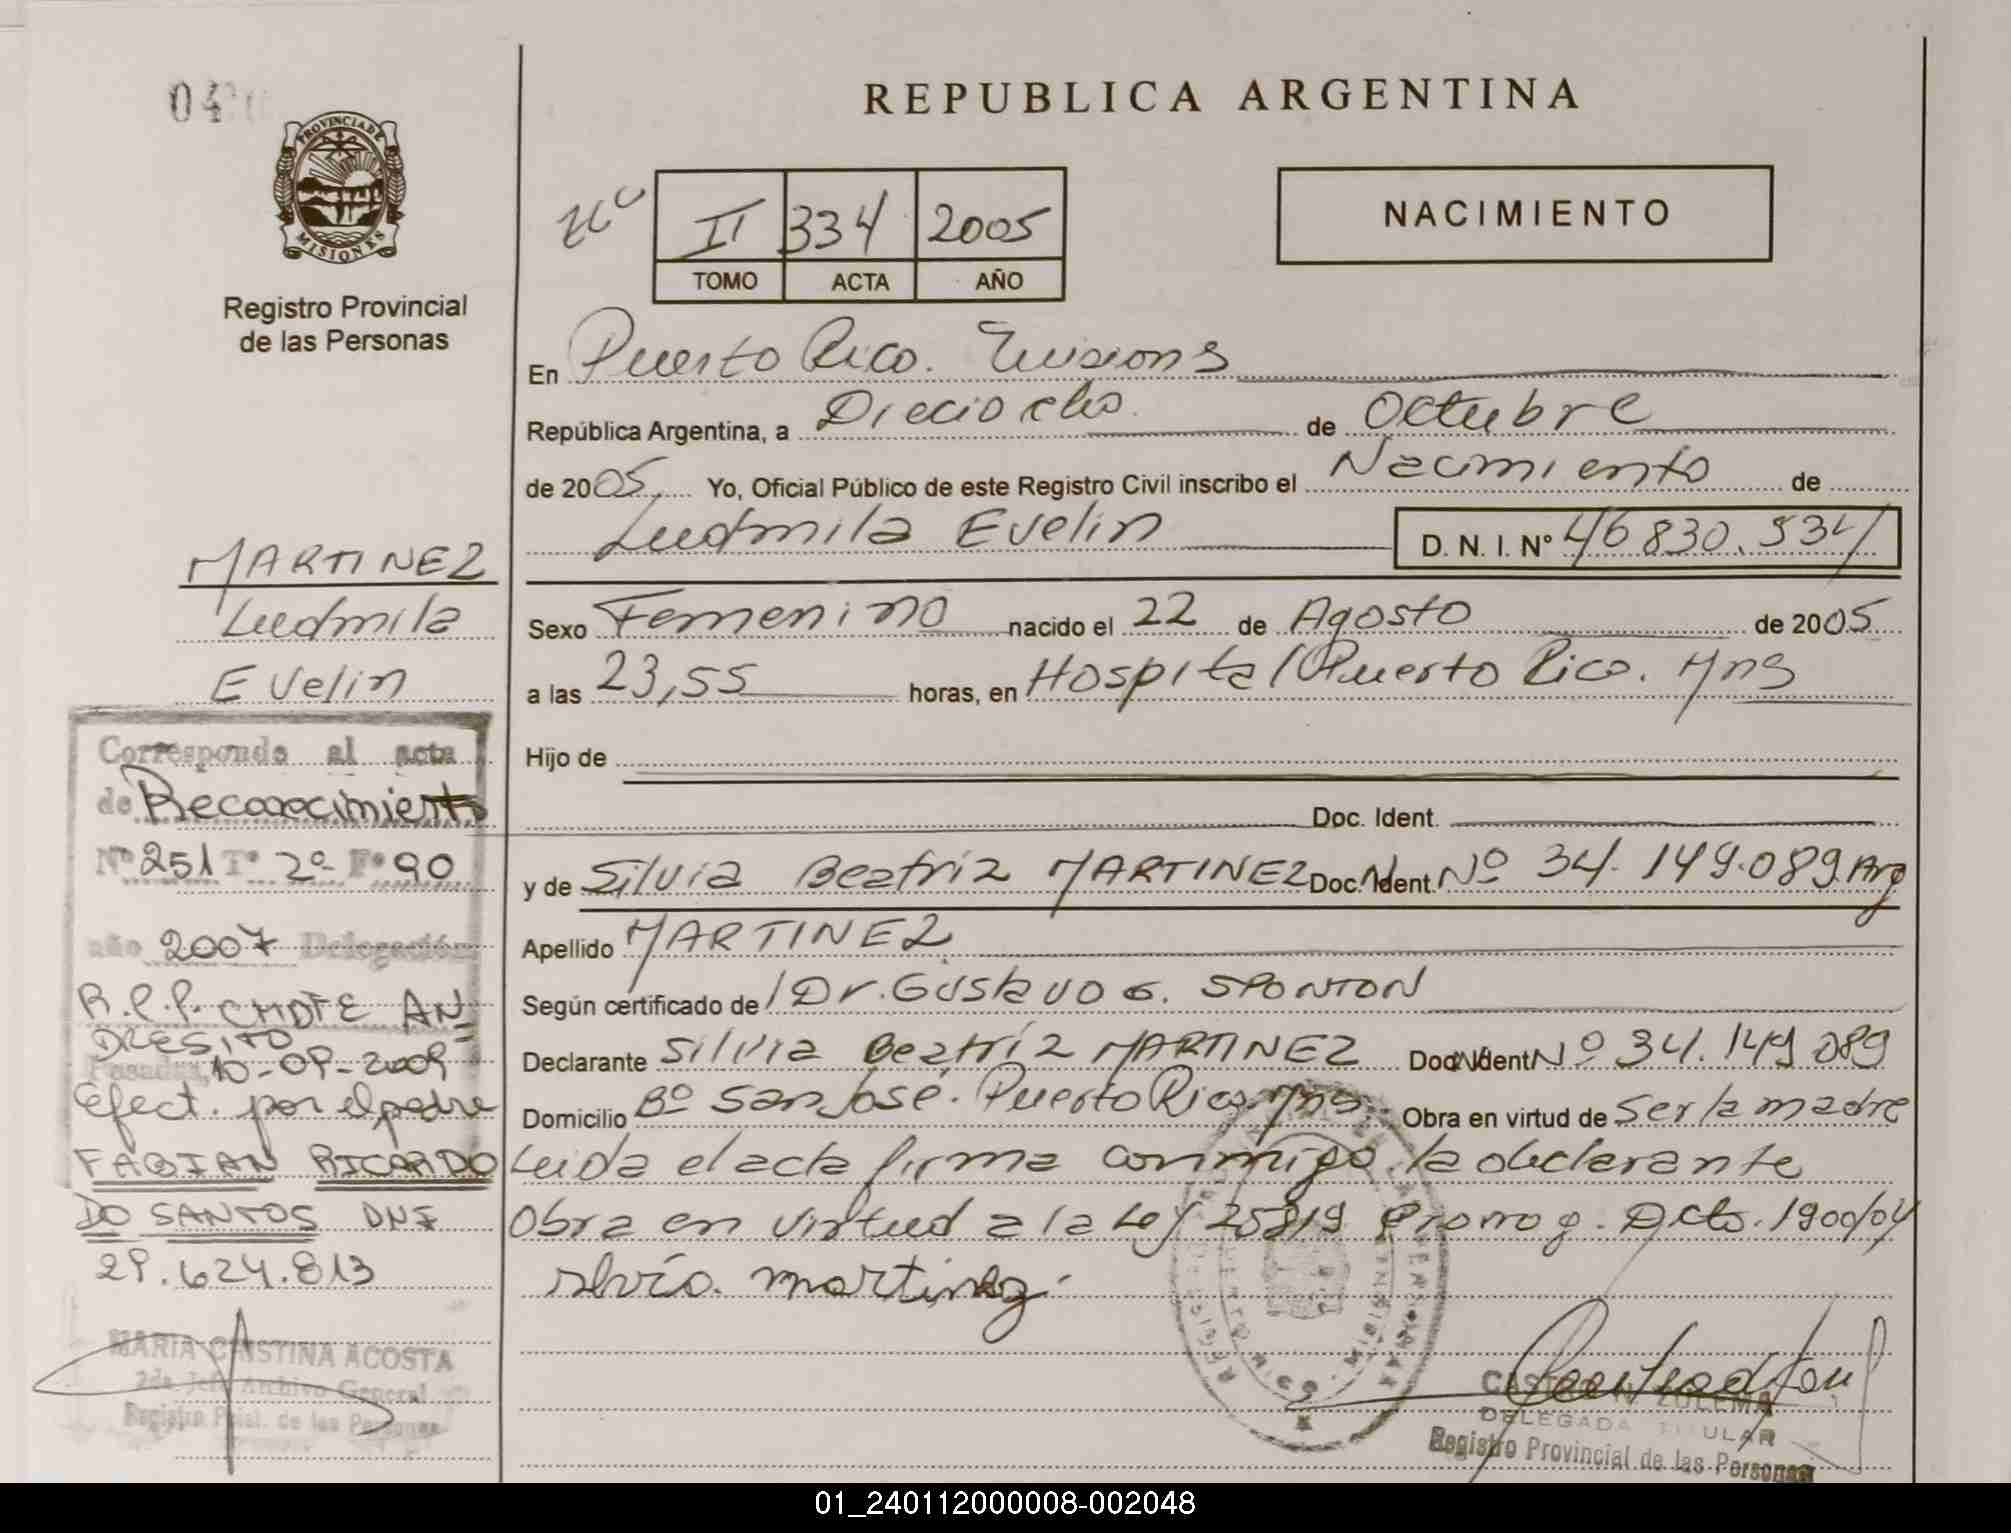 REPUBLICA ARGENTINA
PROVINCIA DE
MISIONES
Registro Provincial
de las Personas
II 334 2005
TOMO ACTA AÑO
NACIMIENTO
En Puerto Rico. Misiones
República Argentina, a Dieciocho de Octubre
de 2005, Yo, Oficial Público de este Registro Civil inscribo el Nacimiento de
Ludmila Evelin D. N. I. N° 46.830.534
Sexo Femenino nacido el 22 de Agosto de 2005
a las 23,55 horas, en Hospital Puerto Rico. Mns
Hijo de
Doc. Ident.
y de Silvia Beatriz MARTINEZ Doc. Ident. Nº 34.149.089 Arg
Apellido MARTINEZ
Según certificado de Dr. Gustavo G. SPONTON
Declarante Silvia Beatríz MARTINEZ Doc. Ident Nº 34.149.089
Domicilio Bº San José. Puerto Rico. Mns. Obra en virtud de Ser la madre
Leida el acta firma conmigo la declarante
Obra en virtud a la Ley 25819 Prorrog. Dcto. 1900/04
silvia martinez
DELEGADA TITULAR
Registro Provincial de las Personas
MARTINEZ
Ludmila
Evelin
Corresponde al acta
de Reconocimiento
Nº 251 Tº 2º Fº 90
año 2007 Delegación
R.P.P. CMDTE AN
DRESITO
Posadas, 10-09-2009
Efect. por el padre
FABIAN RICARDO
DO SANTOS DNI
29.624.813
MARIA CRISTINA ACOSTA
2da. Jefe Archivo General
Registro Pcial. de las Personas
01_240112000008-002048